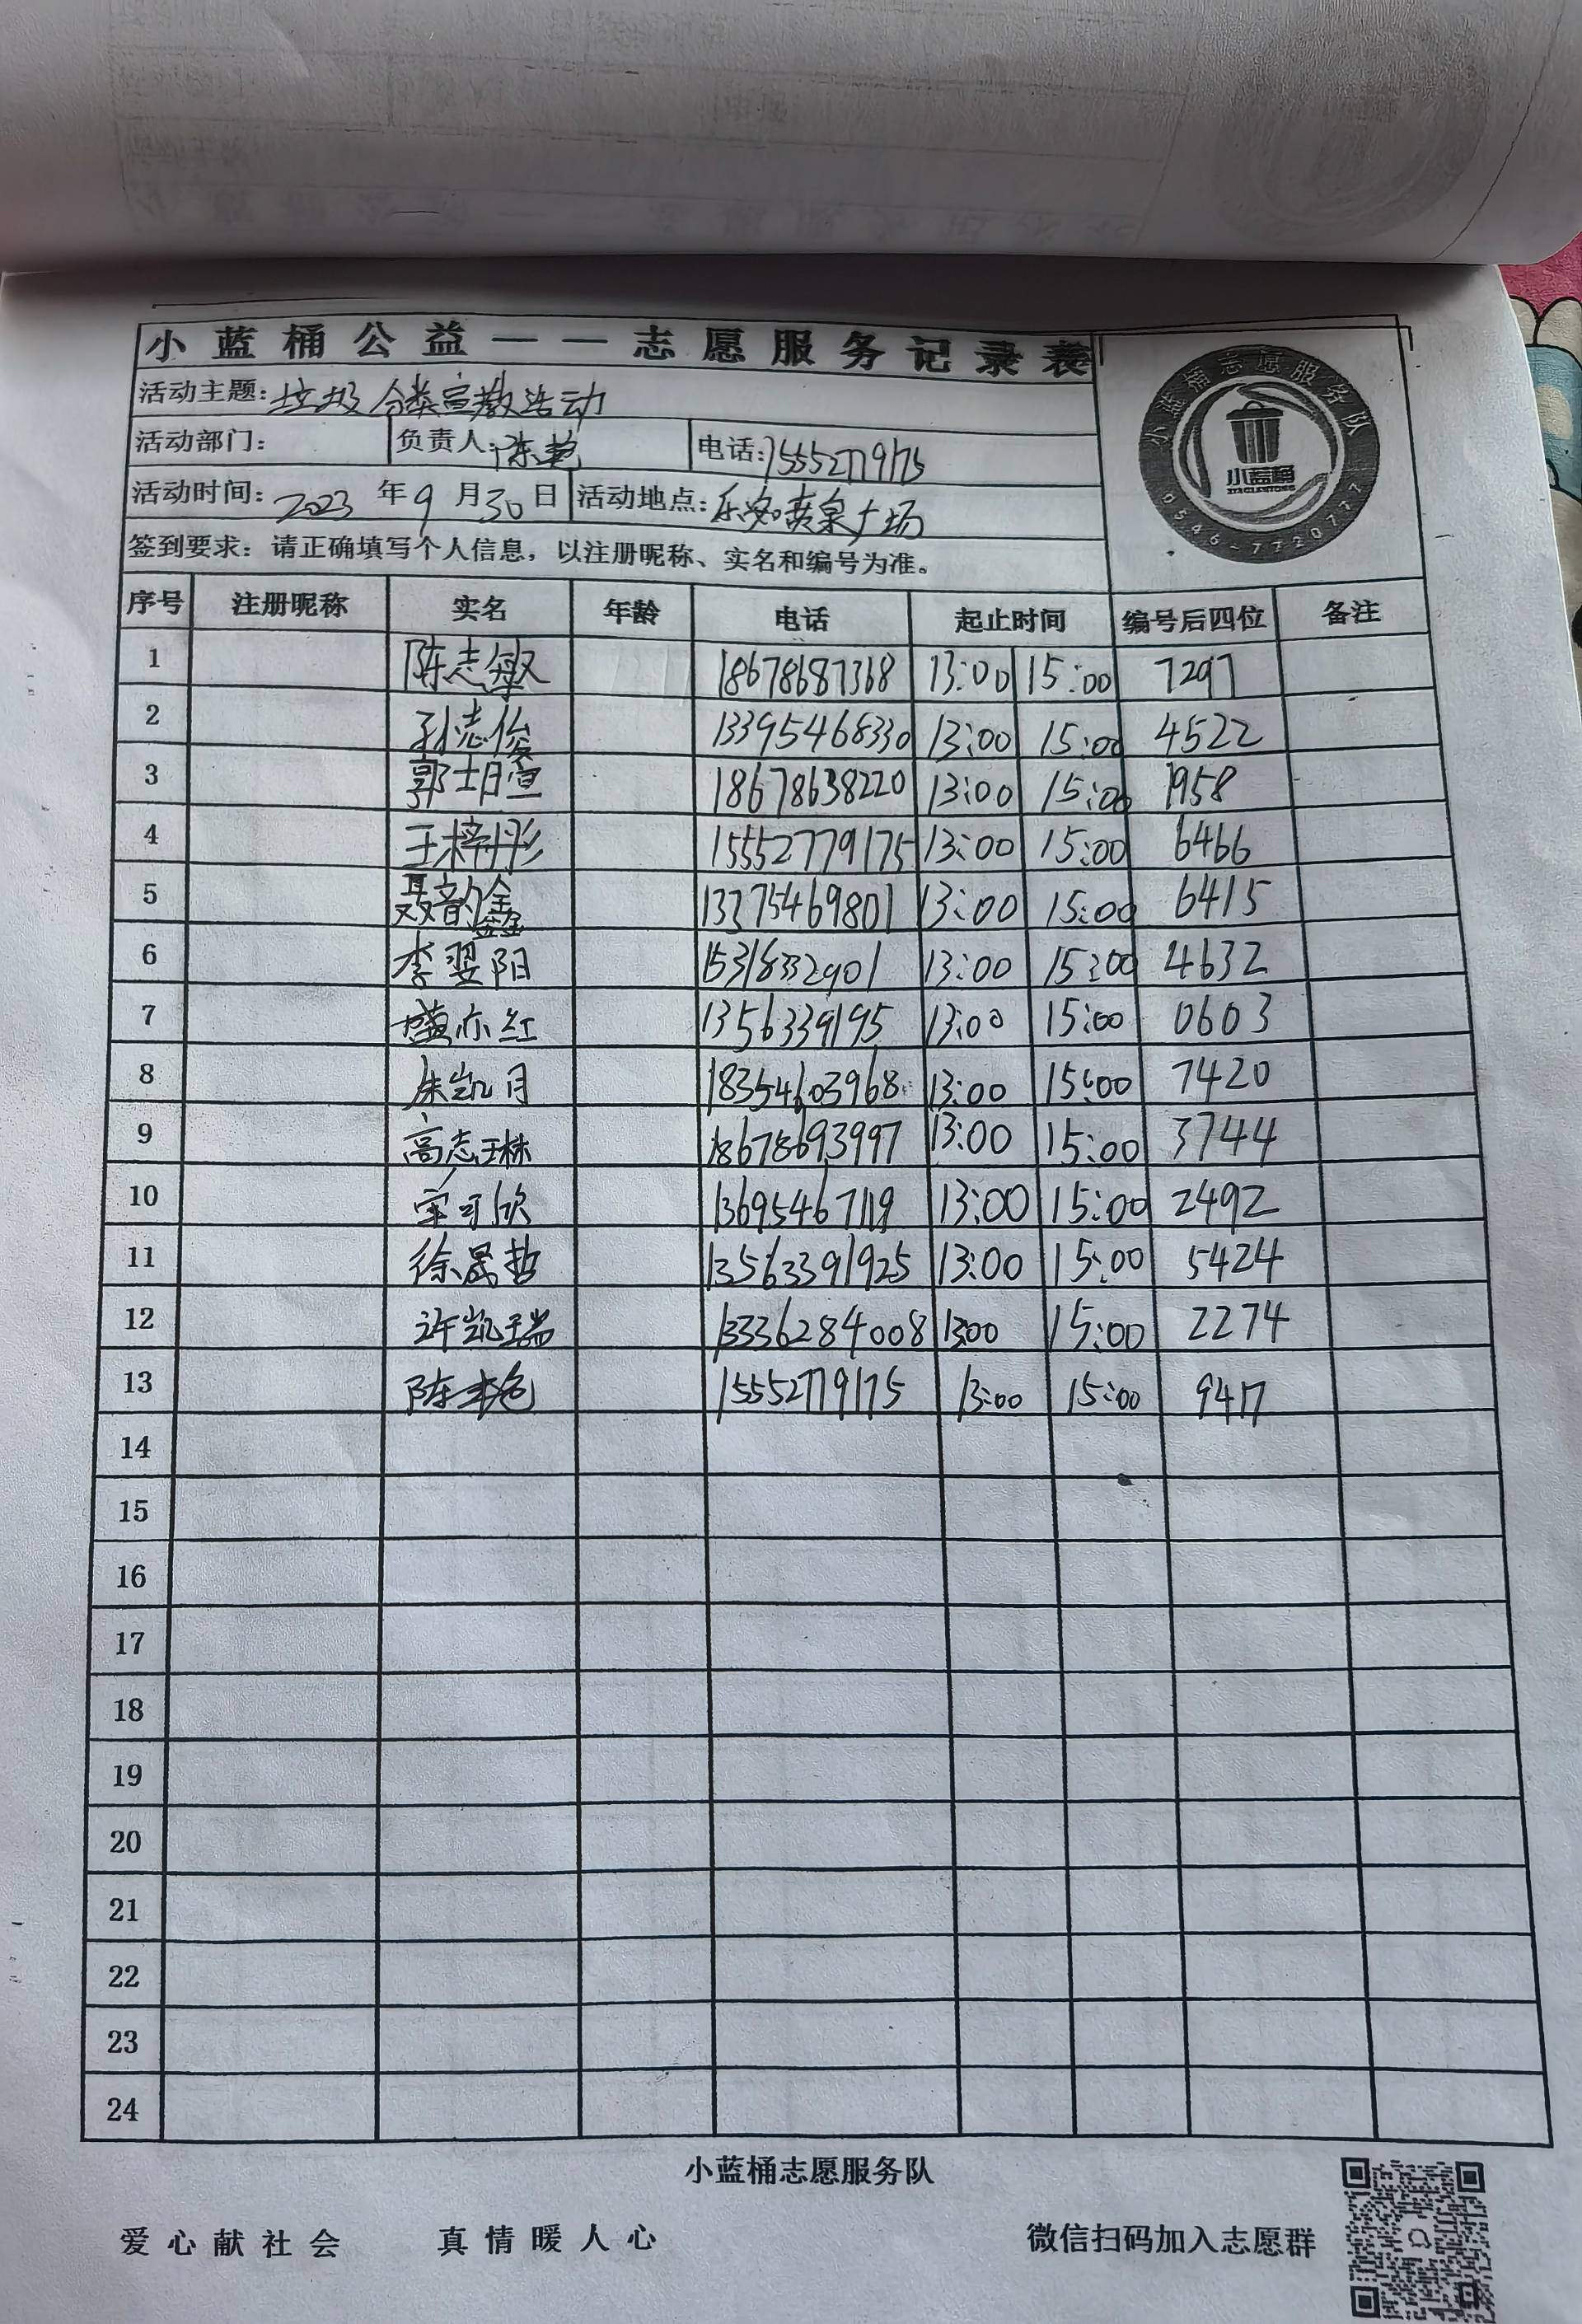 小蓝桶公益——志愿服务记录表
小蓝桶志愿服务队
小蓝桶
0546-7720777
活动主题: 垃圾分类宣教活动
活动部门: 负责人: 陈艳 电话: 15552779175
活动时间: 2023 年 9 月 30 日 活动地点: 乐安喷泉广场
签到要求: 请正确填写个人信息,以注册昵称、实名和编号为准。
序号 注册昵称 实名 年龄 电话 起止时间 编号后四位 备注
1 陈志敏 18678687368 13:00 15:00 7297
2 孙志俊 13395468330 13:00 15:00 4522
3 郭士暄 18678638220 13:00 15:00 1958
4 王梓彤 15552779175 13:00 15:00 6466
5 聂韵鑫 13375469801 13:00 15:00 6415
6 李翌阳 15318332901 13:00 15:00 4632
7 盛亦红 1356339195 13:00 15:00 0603
8 朱凯月 18354603968 13:00 15:00 7420
9 高志琳 18678693997 13:00 15:00 3744
10 宋可欣 13695467119 13:00 15:00 2492
11 徐晟哲 13563391925 13:00 15:00 5424
12 许凯瑞 13336284008 13:00 15:00 2274
13 陈艳 15552779175 13:00 15:00 9417
14
15
16
17
18
19
20
21
22
23
24
小蓝桶志愿服务队
爱心献社会 真情暖人心 微信扫码加入志愿群